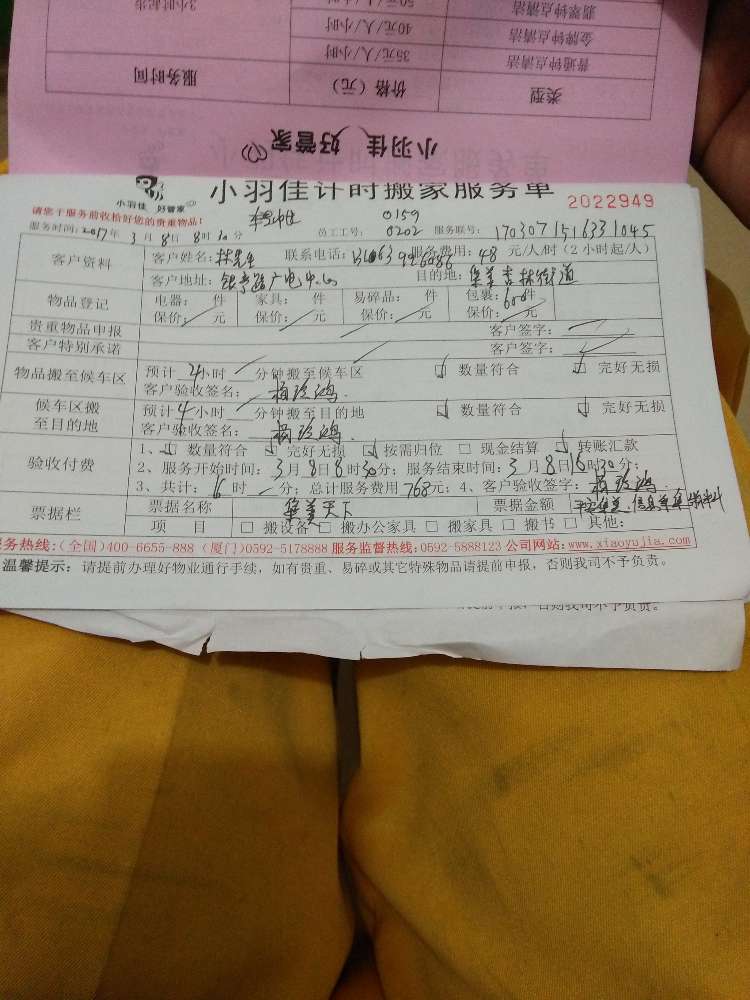 翡翠钟点清洁 50元/人/小时 3小时起步
金牌钟点清洁 40元/人/小时
普通钟点清洁 35元/人/小时
类型 价格（元） 服务时间
小羽佳 好管家
小羽佳 好管家
小羽佳计时搬家服务单
2022949
请您于服务前收拾好您的贵重物品！
服务时间：2017年3月8日8时30分 员工工号：0159 0202 服务联号：1703071516331045
客户资料 客户姓名：林先生 联系电话： 服务费用：48元/人/时（2小时起/人）
客户地址： 广电中心 目的地：集美杏林街道
物品登记 电器： 件 家具： 件 易碎品： 件 包裹：600件
保价： 元 保价： 元 保价： 元 保价： 元
贵重物品申报 客户签字：
客户特别承诺 客户签字：
物品搬至候车区 预计4小时 分钟搬至候车区 数量符合 完好无损
客户验收签名：
候车区搬至目的地 预计4小时 分钟搬至目的地 数量符合 完好无损
客户验收签名：
验收付费 1、 数量符合 完好无损 按需归位 现金结算 转账汇款
2、服务开始时间：3月8日8时30分；服务结束时间：3月8日16时30分；
3、共计：16时 分；总计服务费用768元；4、客户验收签字：
票据栏 票据名称 集美天下 票据金额
项 目 搬设备 搬办公家具 搬家具 搬书 其他：
服务热线：（全国）400-6655-888（厦门）0592-5178888 服务监督热线：0592-5888123 公司网站：www.xiaoyujia.com
温馨提示：请提前办理好物业通行手续，如有贵重、易碎或其它特殊物品请提前申报，否则我司不予负责。
否则我司不予负责。